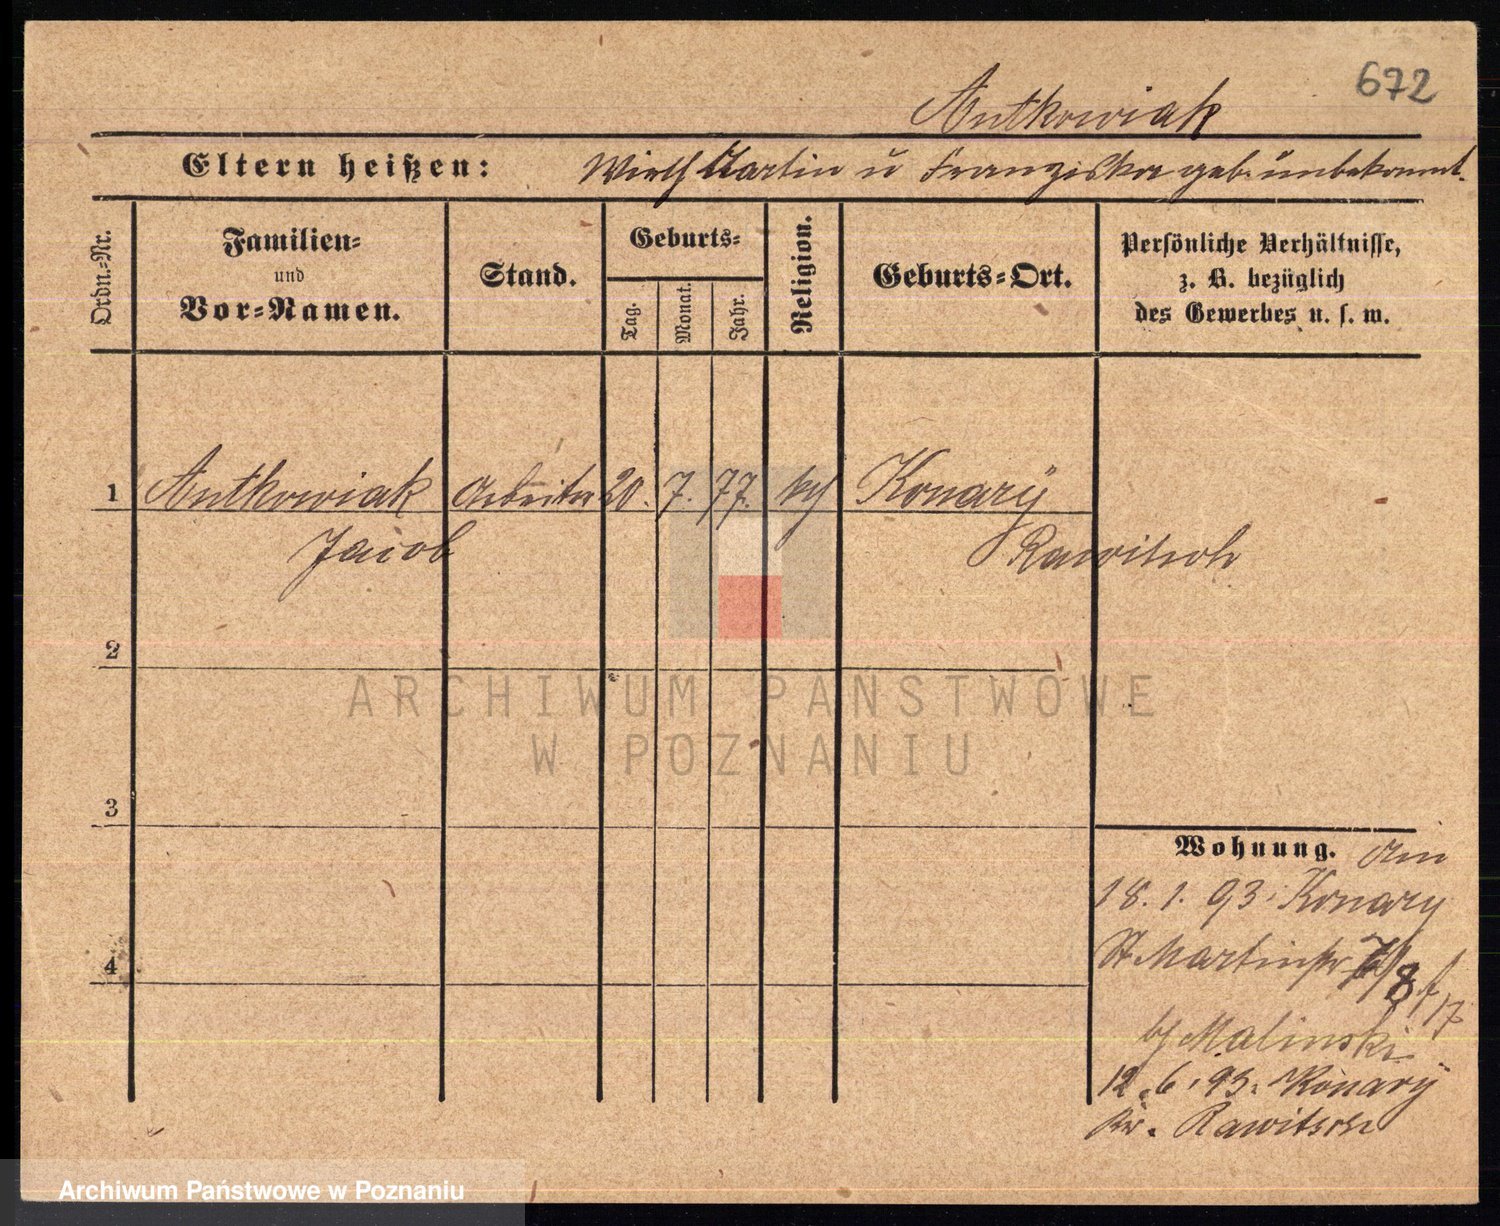 672
Antkowiak
Eltern heißen: Wirth Martin u Franziska geb. unbekannt.
Ordn.-Nr.
Familien-
und
Vor-Namen.
Stand.
Geburts-
Tag.
Monat.
Jahr.
Religion.
Geburts-Ort.
Persönliche Verhältnisse,
z. B. bezüglich
des Gewerbes u. s. w.
1 Antkowiak Arbeiter 20. 7. 77. Konary
Jacob Rawitsch
2
ARCHIWUM PAŃSTWOWE
W POZNANIU
3
Wohnung. Am
18. 1. 93. Konary
St Martinstr 8
4
17
b/ Malinski
12. 6. 93. Konary
Kr. Rawitsch
Archiwum Państwowe w Poznaniu